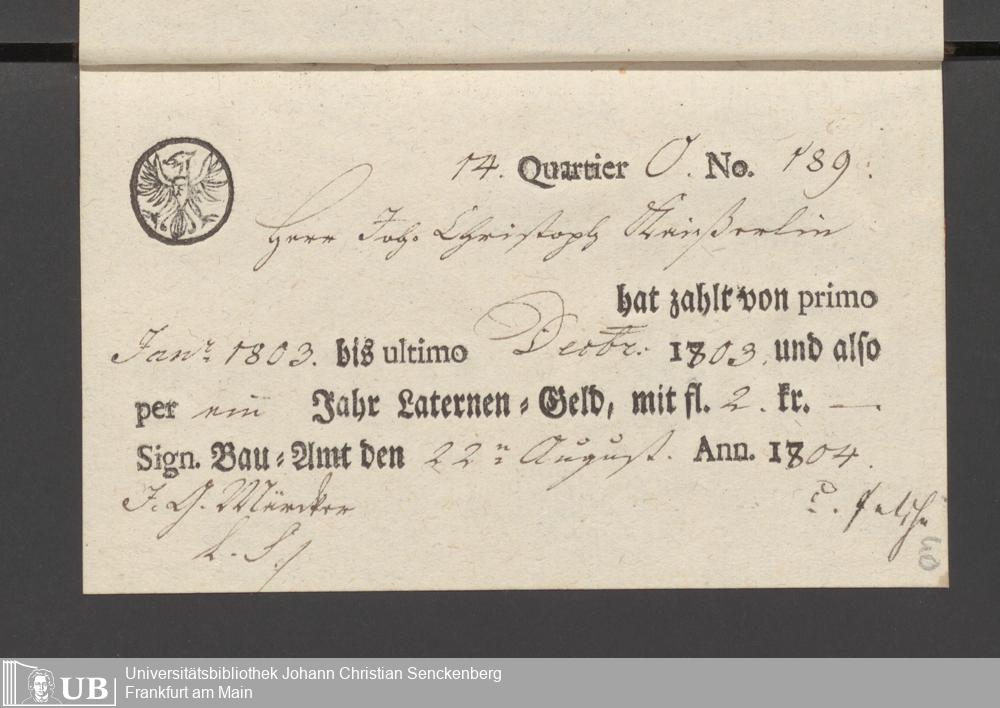 14. Quartier O. No. 189.
Herr Joh. Christoph
hat zahlt von primo
Janr. 1803. bis ultimo Decbr. 1803. und also
per ein Jahr Laternen-Geld, mit fl. 2. kr. —
Sign. Bau-Amt den 22n August. Ann. 1804.
J. G. Märcker
40
UB Universitätsbibliothek Johann Christian Senckenberg
Frankfurt am Main